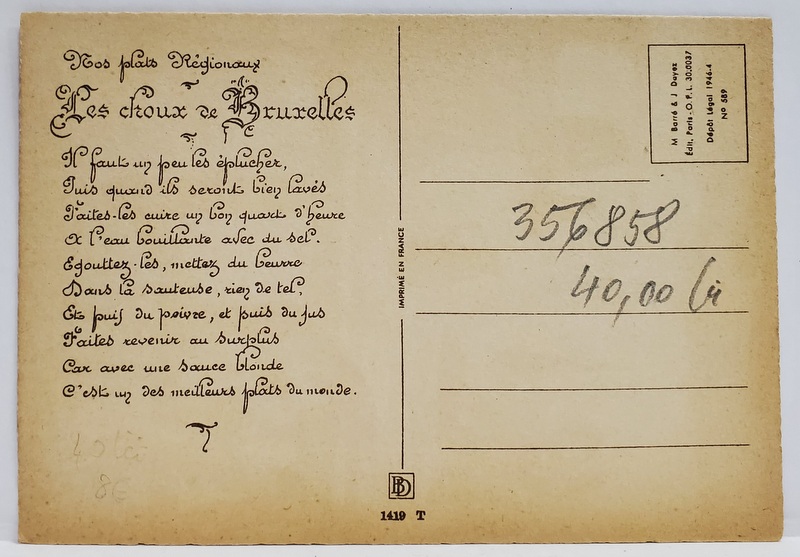 Nos plats Régionaux
Les choux de Bruxelles
Il faut un peu les éplucher,
Puis quand ils seront bien lavés
Faites-les cuire un bon quart d'heure
A l'eau bouillante avec du sel.
Egouttez-les, mettez du beurre
Dans la sauteuse, rien de tel,
Et puis du poivre, et puis du jus
Faites revenir au surplus
Car avec une sauce blonde
C'est un des meilleurs plats du monde.
40 lei
8€
IMPRIMÉ EN FRANCE
BD
1419 T
M Barré & J Dayez
Édit. Paris-O.P.L. 30.0037
Dépôt Légal 1946-4
N° 589
356858
40,00 lei